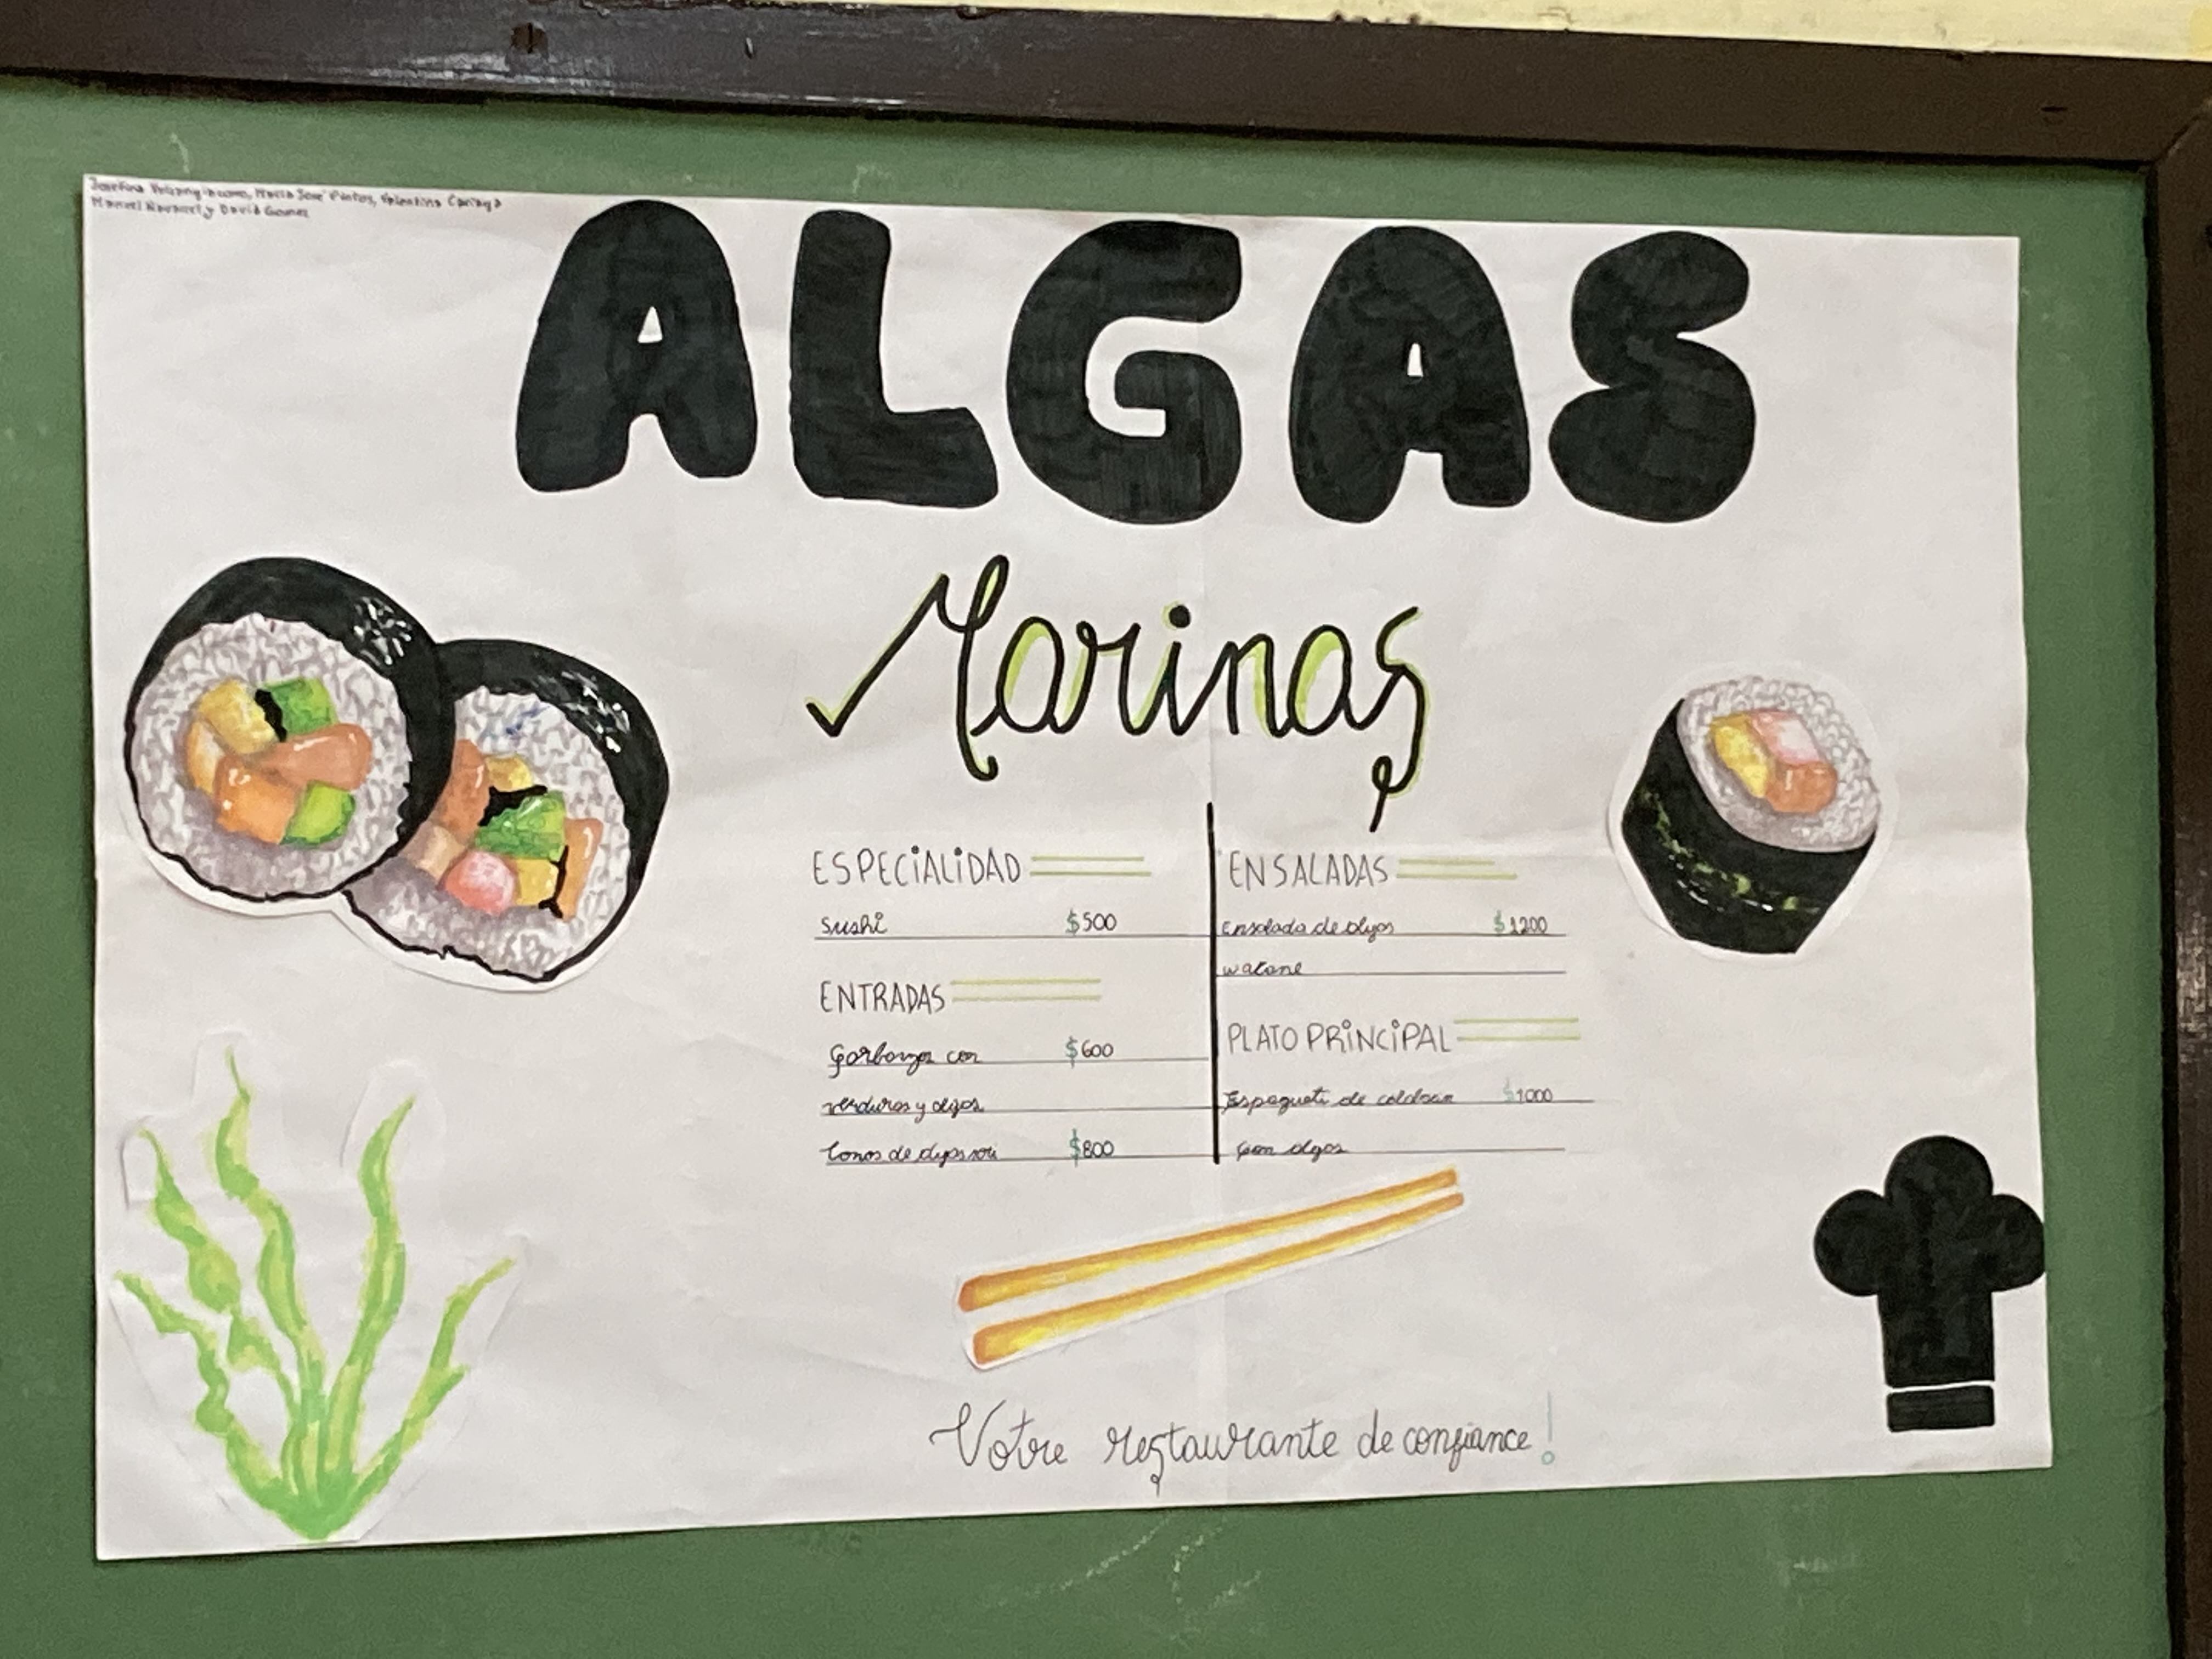 María José Pintos, Valentina
Manuel y David Gomez
ALGAS
Marinas
ESPECiALiDAD
Sushi $500
ENTRADAS
Garbanzos con $600
verduras y algas
Conos de algas nori $800
ENSALADAS
Ensalada de algas $1200
wakame
PLATO PRiNCiPAL
Espagueti de $1000
con algas
Votre restaurante de confiance!